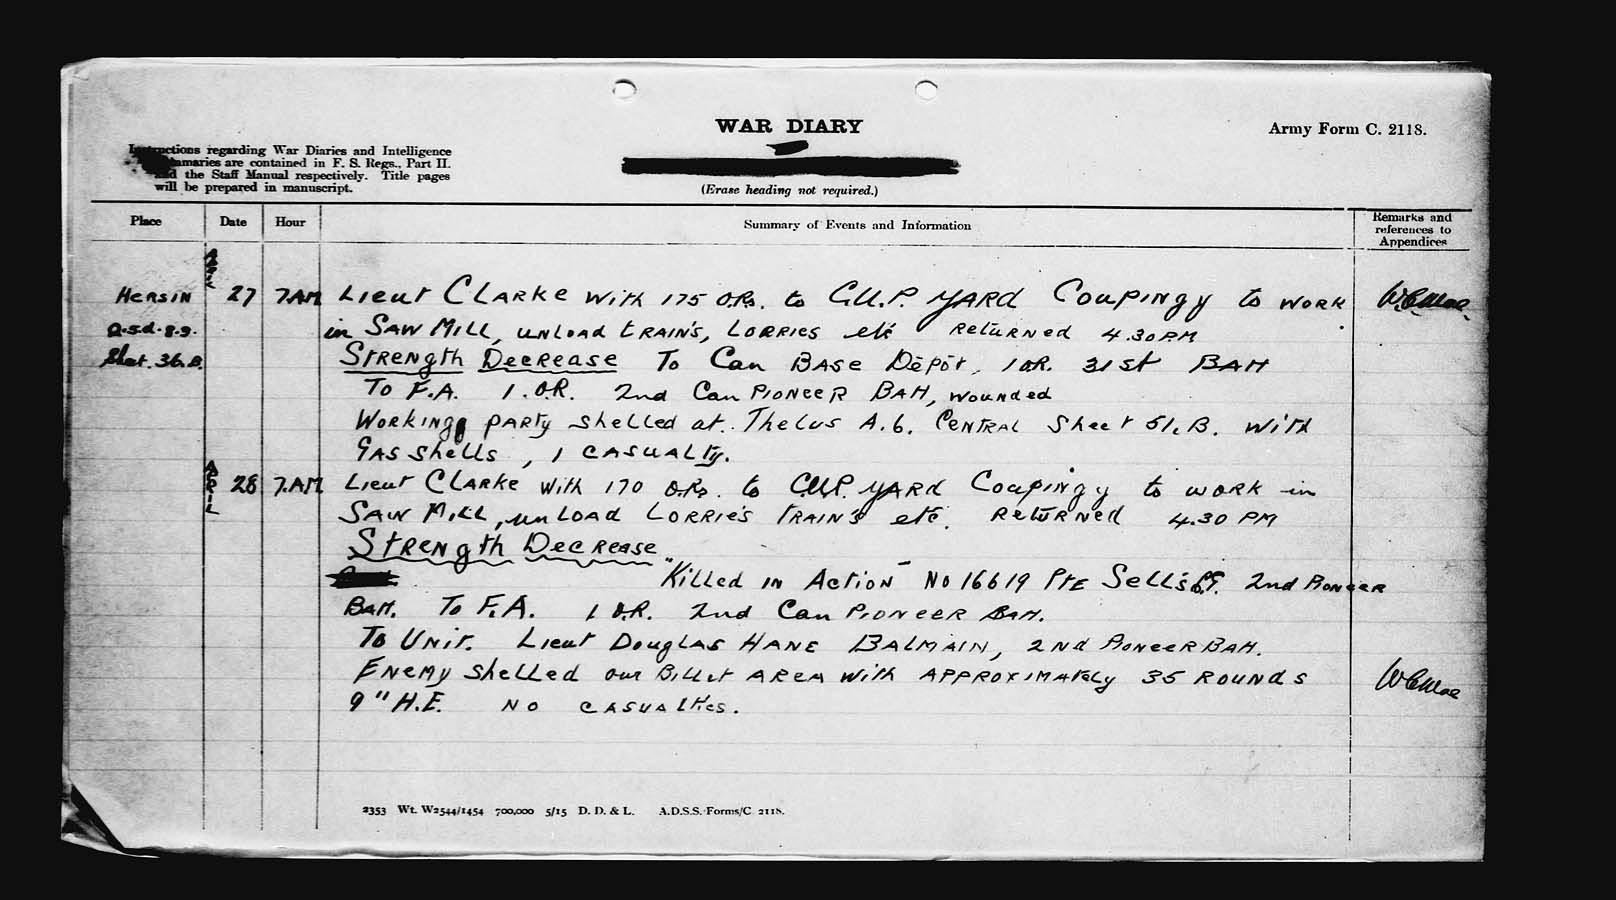 WAR DIARY
Army Form C. 2118.
Instructions regarding War Diaries and Intelligence
Summaries are contained in F. S. Regs., Part II.
and the Staff Manual respectively. Title pages
will be prepared in manuscript.
(Erase heading not required.)
Place Date Hour Summary of Events and Information Remarks and references to Appendices
APRIL
HERSIN 27 7AM Lieut CLARKE with 175 O.Rs. to YARD COUPINGY to WORK
Q.5.d.8.9. in SAW MILL, UNLOAD TRAIN'S, LORRIES etc Returned 4.30PM
Sheet 36.B. STRENGTH DECREASE To Can BASE DEPÔT, 1 OR. 31st BAtt
To F.A. 1.O.R. 2nd Can PIONEER BAtt, wounded
WORKING PARTY shelled at THELUS A.6. CENTRAL Sheet 51.B. with
GAS Shells, 1 CASUALTY.
APRIL 28 7.AM Lieut CLARKE with 170 O.Rs. to YARD COUPINGY to WORK in
SAW MILL, UNLOAD LORRIES TRAIN'S etc. RETURNED 4.30 PM
STRENGTH DECREASE
"Killed IN ACTION" NO 16619 PTE SELLS 2nd PIONEER
BAtt. To F.A. 1 O.R. 2nd Can PIONEER BAtt.
To UNIT. Lieut DOUGLAS HANE BALMAIN, 2nd PIONEER BAtt.
ENEMY Shelled our BILLET AREA with APPROXIMATELY 35 ROUNDS
9" H.E. NO CASUALTIES.
2353 Wt. W2544/1454 700,000 5/15 D. D. & L. A.D.S.S./Forms/C. 2118.